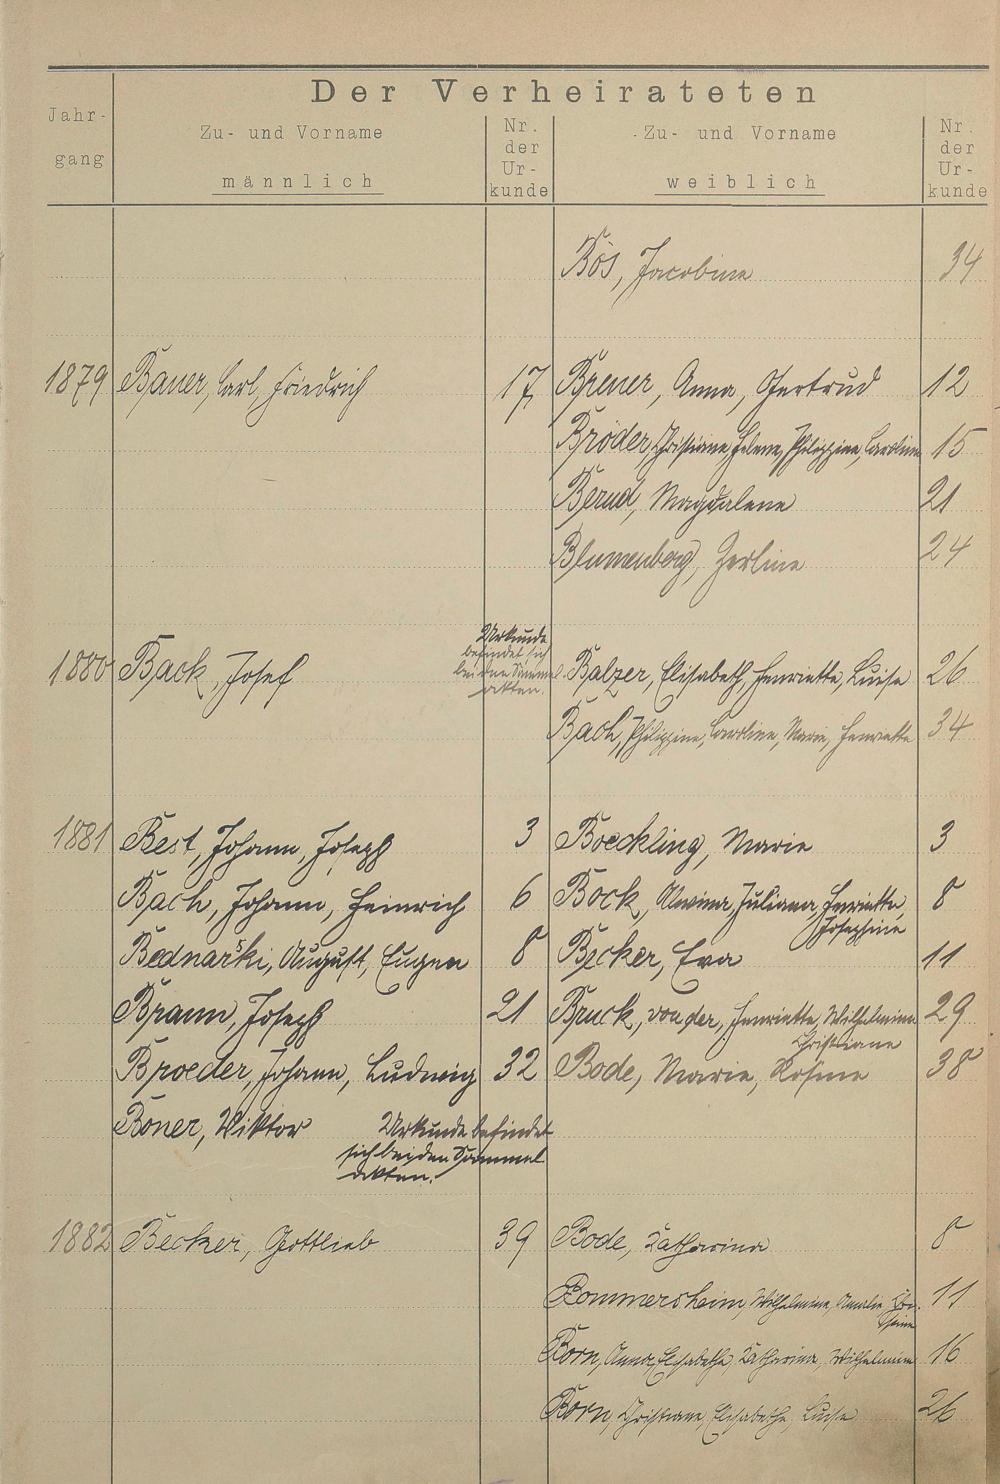 Der Verheirateten
Jahr-
gang
Zu- und Vorname
männlich
Nr.
der
Ur-
kunde
Zu- und Vorname
weiblich
Nr.
der
Ur-
kunde
Bös, Jacobine 34
1879 Bauer, Carl, Friedrich 17 Breuer, Anna, Gertrud 12
Bröder, Christiane, Helene, Philippine, Caroline 15
Bernd, Magdalene 21
Blumenberg, Zerline 24
1880 Back, Josef Urkunde
befindet sich
bei den Sammel-
akten.
Balzer, Elisabeth, Henriette, Luise 26
Bach, Philippine, Caroline, Marie, Henriette 34
1881 Best, Johann, Joseph 3 Boeckling, Marie 3
Bach, Johann, Heinrich 6 Bock, Alwina, Juliana, Henriette, 8
Josephine
Bednarski, August, Eugen 8 Becker, Eva 11
Braun, Joseph 21 Bruck, von der, Henriette, Wilhelmine 29
Christiane
Broeder, Johann, Ludwig 32 Bode, Marie, Rosine 38
Boner, Wiktor Urkunde befindet
sich bei den Sammel
akten.
1882 Becker, Gottlieb 39 Bode, Katharina 8
Bommersheim, Wilhelmine, Amalie, 11
Born, Anna, Elisabethe, Katharina, Wilhelmine 16
Born, Christiane, Elisabethe, Luise 26